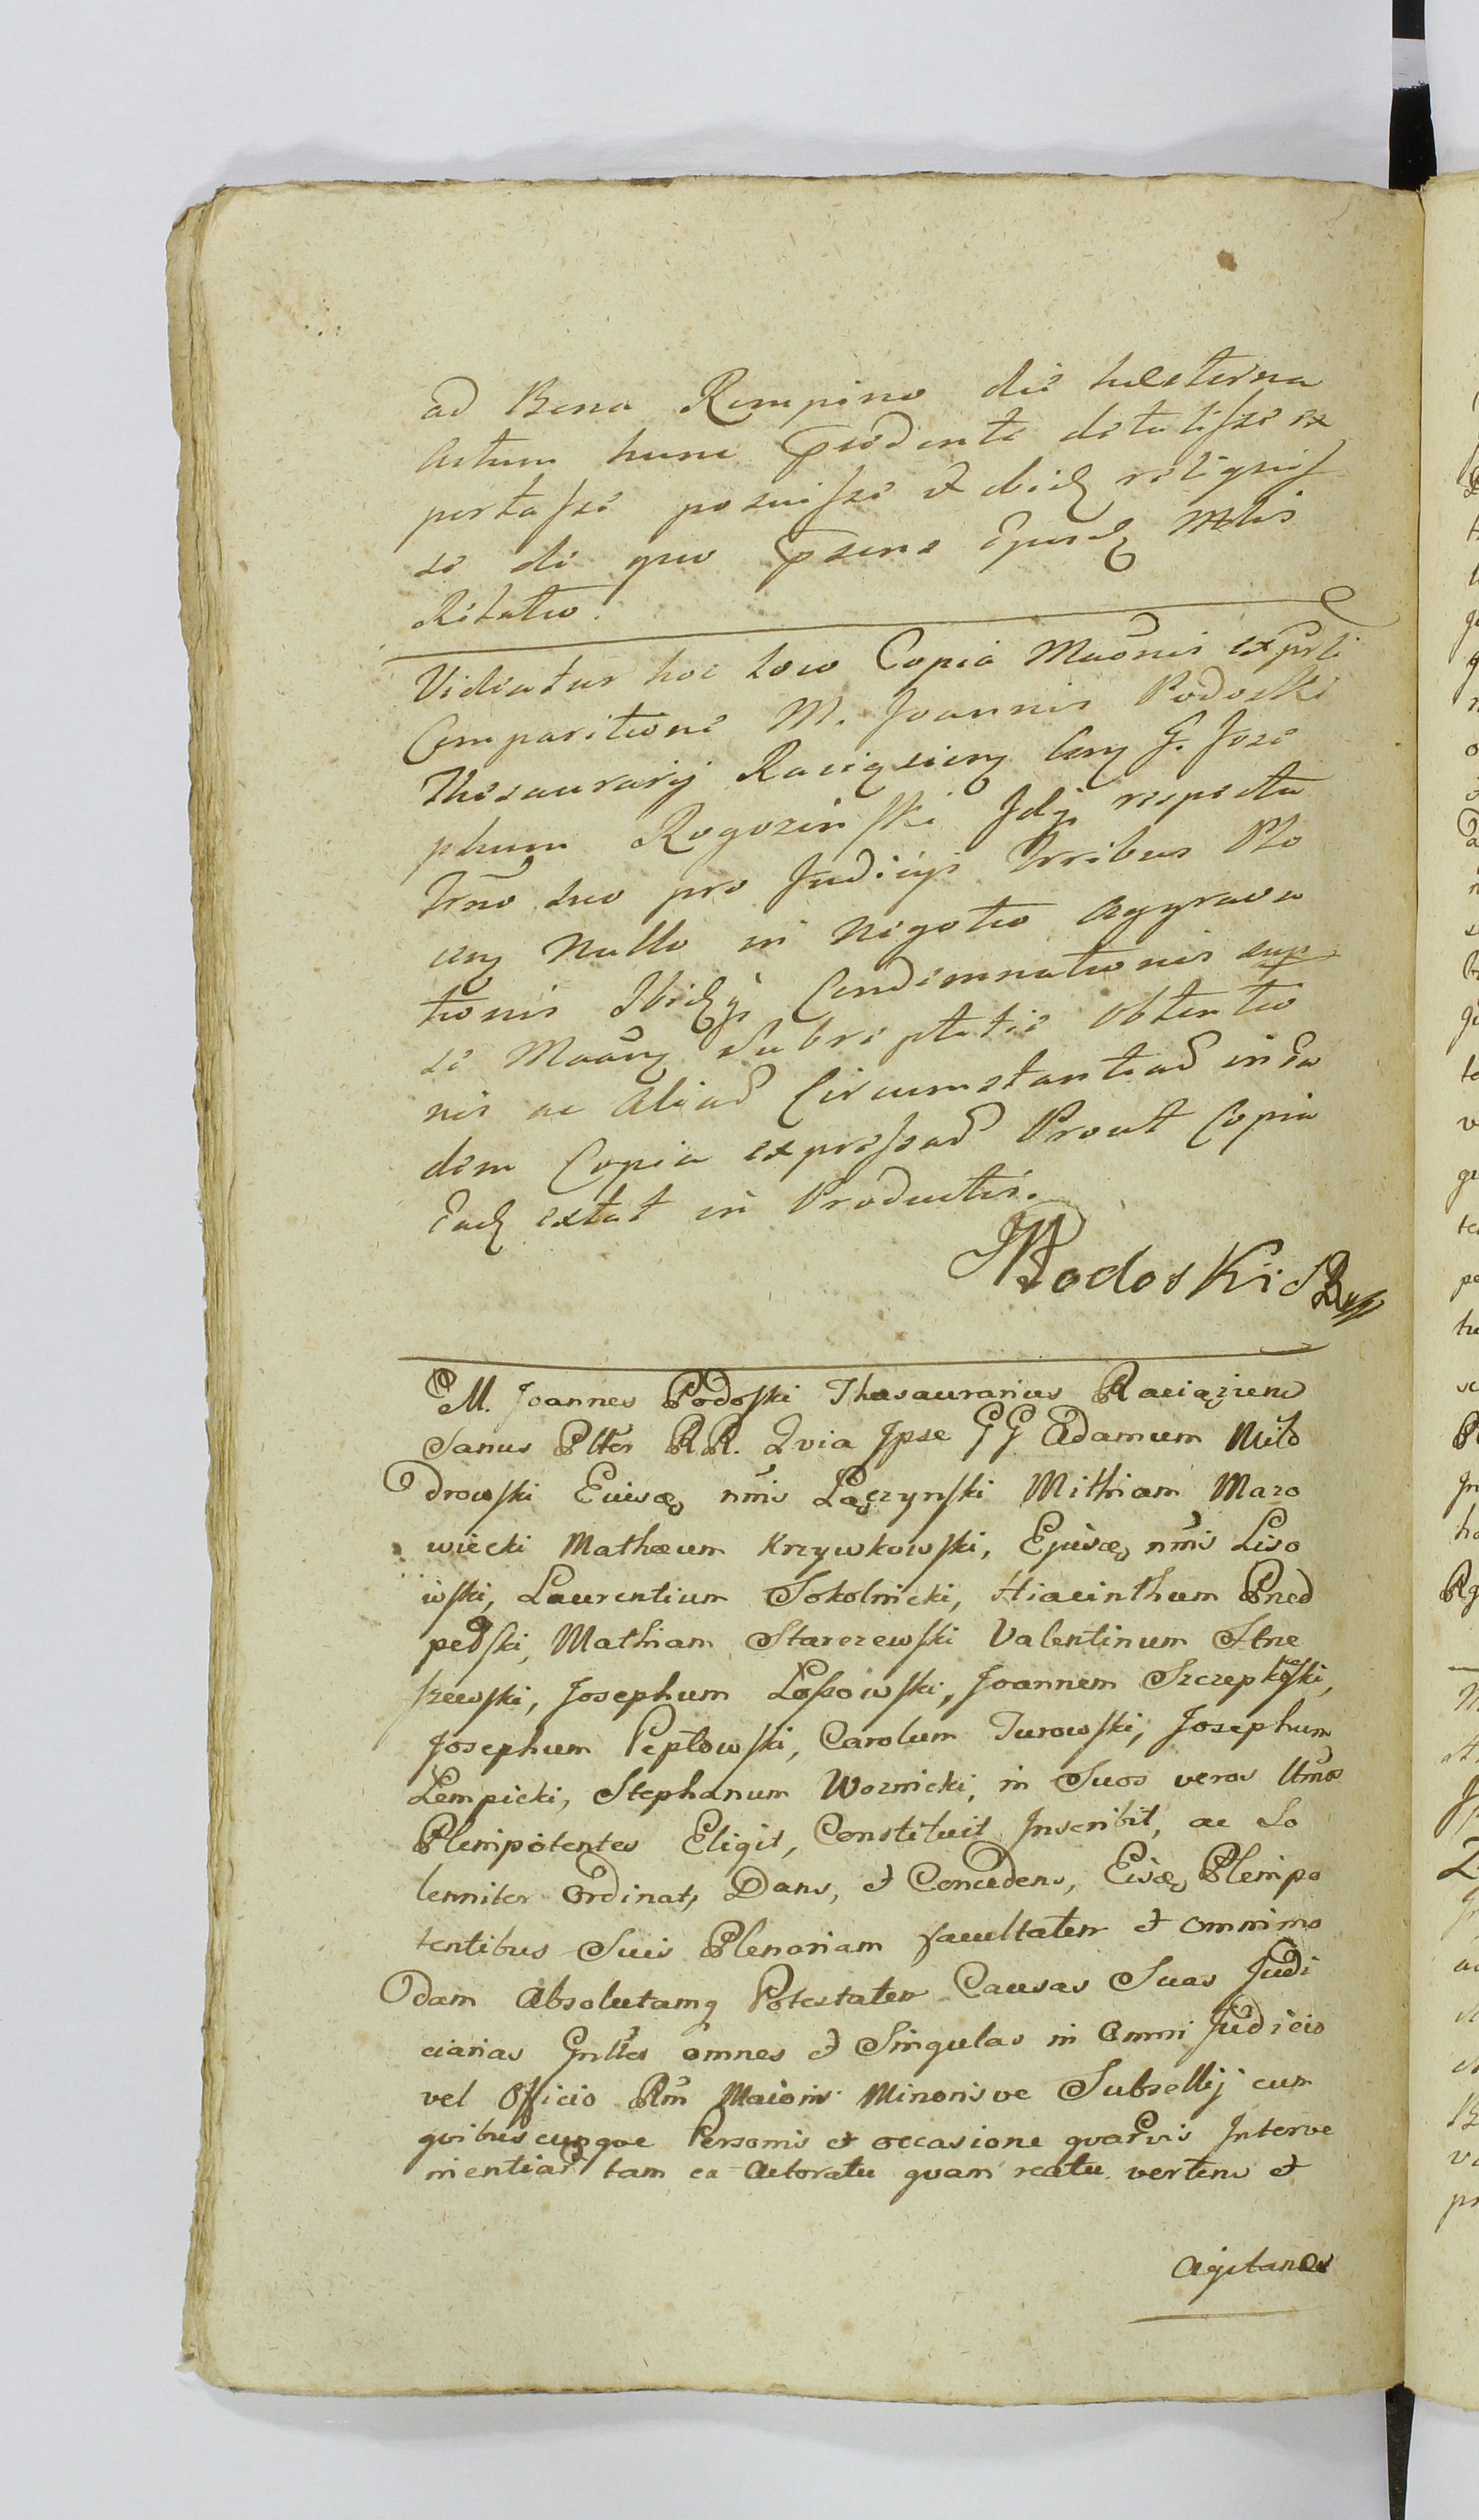 ad Bona Rempino die hesterna
Actum hunc Psedente detulisse ex
portasse posuisse et ibidq reliquis
se de quo Psens Ejusdq Mtlis
Relatio.
Videatur hoc loco Copia Maõnis ex Prte
Comparitione M. Joannis Podoski
Thesaurarij Raciąziens Cong G. Jose
phum Rogoziński respectu
Trno suo pro Judicijs Trribus Plo
cens Nullo in Negotio Aggrava
tionis Ibidq Condemnationis sup
se Maõnis Subreptitie Obtentio
nis ac aliad Circumstantiad in Ea
dem Copia expressad Prout Copia
Eadq extat in Productis.
JPodoski SR
M. Joannes Podoski Thesaurarius Raciąziens
Sanus Pltes RR. Qvia Ipse GG Adamum Milo
drowski Eiusdq nmis Łączynski Mithiam Mazo
wiecki Mathæum Krzywkowski, Ejusdq nmis Liso
wski, Laurentium Sokolnicki, Hiacinthum Pned
pełski, Mathiam Starczewski Valentinum Strze
szewski, Josephum Lossowski, Joannem Szczepkowski,
Josephum Pepłowski, Carolum Turowski, Josephum
Lempicki, Stephanum Woznicki, in Suos veros Ltmos
Plenipotentes Eligit, Constituit Inscribit, ac So
lenniter Ordinat, Dans, et Concedens, Eisdq Plenipo
tentibus Suis Plenariam facultatem et omnimo
dam Absolutamq Potestatem Causas Suas Judi
ciarias Gnltes omnes et Singulas in Omni Judicio
vel Officio Rni Maioris Minorisve Subsellij cum
qvibuscunque Personis et occasione qvarvis Interve
nientiad tam ea Actoratu quam reatu verten et
Agitandas